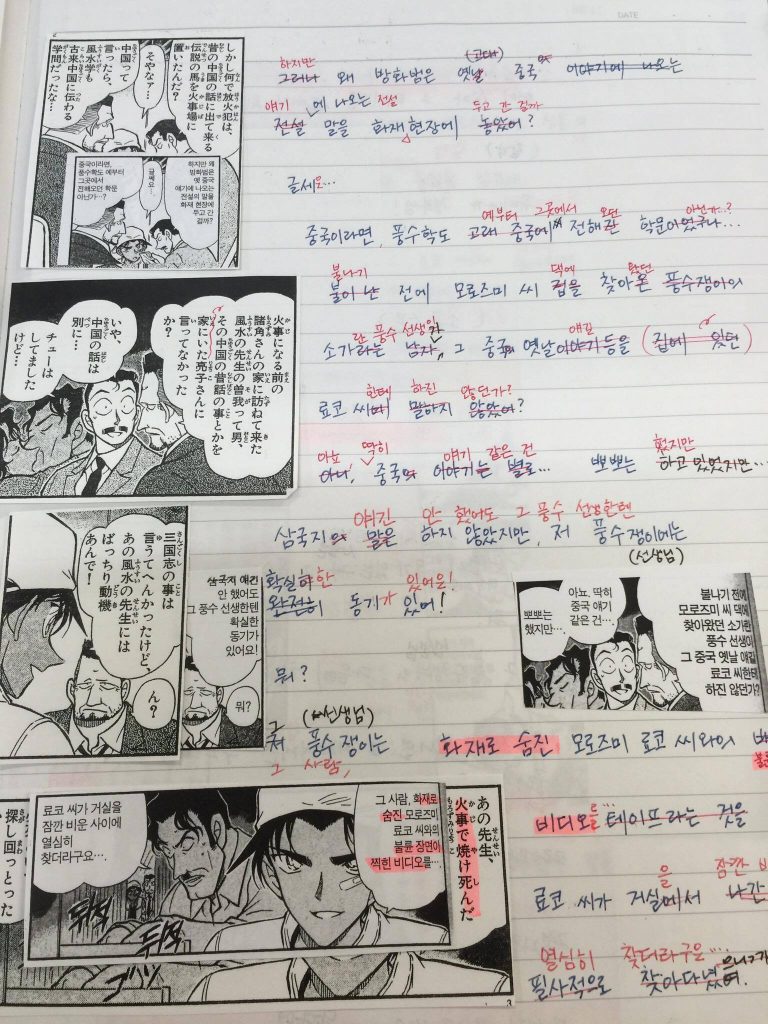 DATE
しかし何で放火犯は、
昔の中国の話に出て来る
伝説の馬を火事場に
置いたんだ?
そやなァ…
中国って
言ったら、
風水学も
古来中国に伝わる
学問だったな…
하지만 왜
방화범은
옛 중국
얘기에 나오는
전설의 말을
화재 현장에
두고 간
걸까?
글쎄요…
중국이라면,
풍수학도 예부터
그곳에서
전해오던 학문
아닌가…?
하지만 (고대)
그러나 왜 방화범은 옛날 중국 이야기에 나오는
얘기에 나오는 전설 두고 간 걸까
전설 말을 화재 현장에 놓았어?
글세요…
예부터 그곳에서 오던 아닌가…?
중국이라면, 풍수학도 고래 중국에 전해진 학문이었구나…
불나기 댁에 왔던
불이 난 전에 모로즈미 씨 집을 찾아온 풍수쟁이의
란 풍수 선생이 얘길
소가라는 남자, 그 중국 옛날이야기 등을 (집에 있던)
한테 하진 않던가?
료코 씨 말하지 않았어?
아뇨, 딱히 얘기 같은 건 했지만
아니, 중국의 이야기는 별로… 뽀뽀는 하고 있었지만…
얘긴 안 했어도 그 풍수 선생한텐
삼국지의 말을 하지 않았지만, 저 풍수쟁이에는
(선생님)
확실한 있어요!
완전히 동기가 있어!
뭐?
그 (선생님)
저 풍수쟁이는 화재로 숨진 모로즈미 료코 씨와의
그 사람,
를…
비디오 테이프라는 것을
을 잠깐
료코 씨가 거실에서
열심히 찾더라구요…
필사적으로 찾아다녔어.
火事になる前の
諸角さんの家に訪ねて来た
風水の先生の曽我って男、
その中国の昔話の事とかを
家にいた亮子さんに
言ってなかった
か?
いや、
中国の話は
別に…
チューは
してました
けど…
三国志の事は
言うてへんかったけど、
あの風水の先生には
ばっちり動機
あんで!
ん?
삼국지 얘긴
안 했어도
그 풍수 선생한텐
확실한
동기가
있어요!
뭐?
불나기 전에
모로즈미 씨 댁에
찾아왔던 소가란
풍수 선생이
그 중국 옛날 얘길
료코 씨한테
하진 않던가?
아뇨, 딱히
중국 얘기
같은 건…
뽀뽀는
했지만…
あの先生、
火事で焼け死んだ
그 사람, 화재로
숨진 모로즈미
료코 씨와의
불륜 장면이
찍힌 비디오를…
료코 씨가 거실을
잠깐 비운 사이에
열심히
찾더라구요…
探し回っとった
3